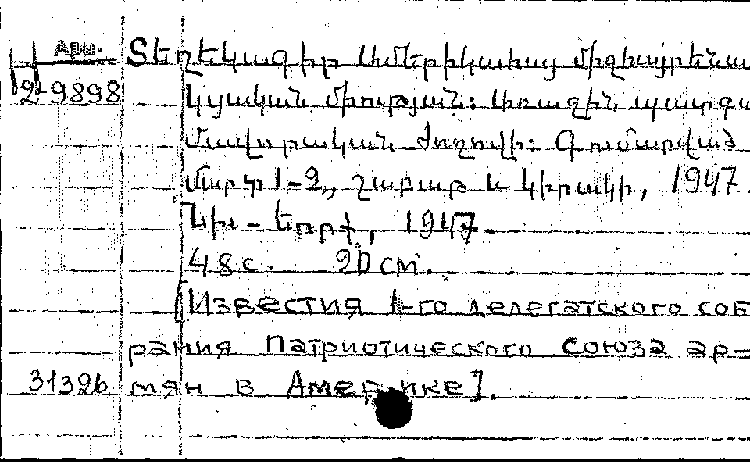 Арм. Տեղեկագիր Ամերիկահայ միջհայրենա
2-9898 կցական միության։ Առաջին պատգա
մավորական ժողովի։ Գումարված
մարտ 1-2, շաբաթ և կիրակի, 1947.
Նիւ-Եորք, 1947.
48с. 20см.
[Известия 1-го делегатского соб
рания Патриотического союза ар-
31396 мян в Америке].